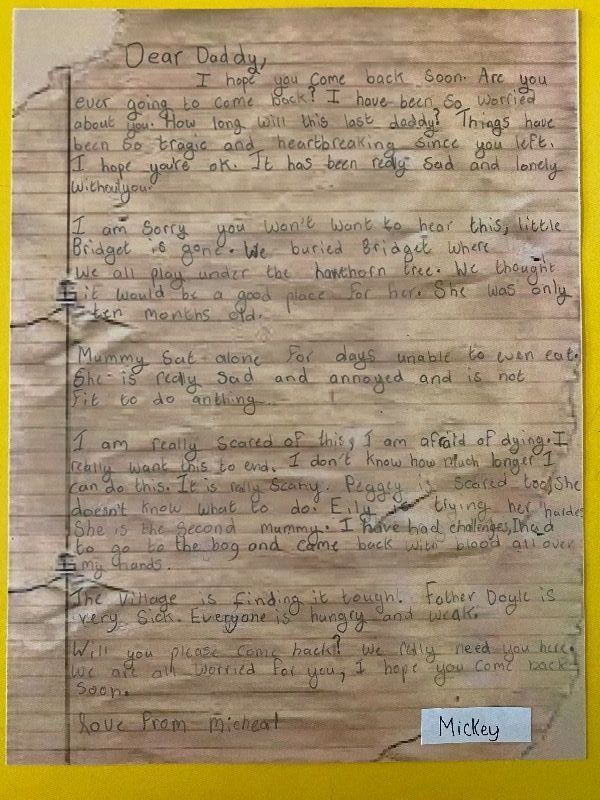 Dear Daddy,
I hope you come back soon. Are you
ever going to come back? I have been so worried
about you. How long will this last daddy? Things have
been so tragic and heartbreaking since you left.
I hope you're ok. It has been redly sad and lonely
without you.
I am sorry you won't want to hear this, little
Bridget is gone. We buried Bridget where
we all play under the hawthorn tree. We thought
it would be a good place for her. She was only
ten months old.
Mummy sat alone for days unable to even eat.
She is redly sad and annoyed and is not
fit to do anthing.
I am really scared of this, I am afraid of dying. I
really want this to end. I don't know how much longer I
can do this. It is rally scary. Peggey is scared too! She
doesn't know what to do. Eily is trying her hardes
She is the second mummy. I have had challenges, I had
to go to the bog and came back with blood all over
my hands.
The village is finding it tough! Father Doyle is
very sick. Everyone is hungry and weak.
Will you please come back? We relly need you here.
We are all worried for you, I hope you come back
soon.
Love from Micheal
Mickey